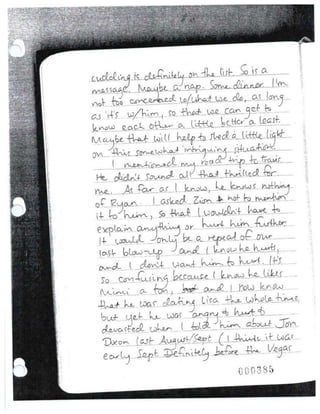 cuddling is definitely on the list. So is a
message. Maybe a nap. Some dinner. I'm
not too concerned w/what we do, as long
as it's w/him, so that we can get to
know each other a little better a least.
Maybe that will help to shed a little light
on this somewhat intriguing situation.
I mentioned my road trip to Travis
He didn't sound all that thrilled for
me. As far as I know, he knows nothing
of Ryan. I asked Zion not to mention
it to him, so that I wouldn't have to
explain anything or hurt him further.
It would only be a repeat of our
last blow-up - and I know he hurts,
and I don't want him to hurt. It's
so confusing because I know he likes
Mimi a ton, and I now know
that he was dating Lisa the whole time,
but yet he was angry & hurt &
devasted when I told him about Jon
Dixon last August/Sept. (I think it was
early Sept. Definitely before the Vegas
000385